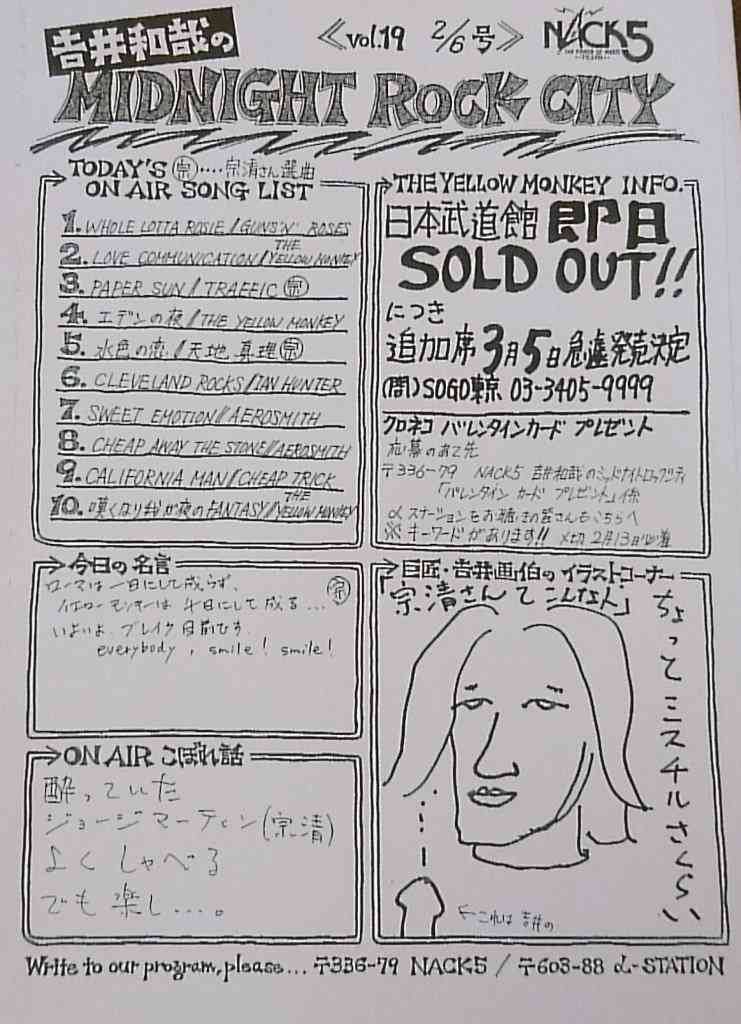 吉井和哉の
≪vol.19 2/6号≫
NACK5
MIDNIGHT ROCK CITY
TODAY'S ㊪....宗清さん選曲
ON AIR SONG LIST
1. WHOLE LOTTA ROSIE / GUNS 'N' ROSES
2. LOVE COMMUNICATION / THE YELLOW MONKEY
3. PAPER SUN / TRAFFIC ㊪
4. エデンの夜 / THE YELLOW MONKEY
5. 水色の恋 / 天地真理 ㊪
6. CLEVELAND ROCKS / IAN HUNTER
7. SWEET EMOTION / AEROSMITH
8. CHEAP AWAY THE STONE / AEROSMITH
9. CALIFORNIA MAN / CHEAP TRICK
10. 嘆くなり我が夜のFANTASY / THE YELLOW MONKEY
THE YELLOW MONKEY INFO.
日本武道館 即日
SOLD OUT!!
につき
追加席 3月5日 急遽発売決定
(問)SOGO東京 03-3405-9999
クロネコ バレンタインカード プレゼント
応募のあて先
〒336-79 NACK5 吉井和哉のミッドナイトロックシティ
「バレンタイン カード プレゼント」係
αステーションをお聴きの皆さんもこちらへ
※キーワードがあります!! 〆切 2月13日必着
今日の名言
ローマは一日にして成らず、㊪
イエローモンキーは 4日にして成る...
いよいよ ブレイク目前です
everybody, smile! smile!
ON AIR こぼれ話
酔っていた
ジョージマーティン(宗清)
よく しゃべる
でも 楽し...。
巨匠・吉井画伯の イラストコーナー
「宗清さんてこんな人」
ちょってミスチルさくらい
←これは 吉井の
Write to our program, please... 〒336-79 NACK5 / 〒603-88 α-STATION